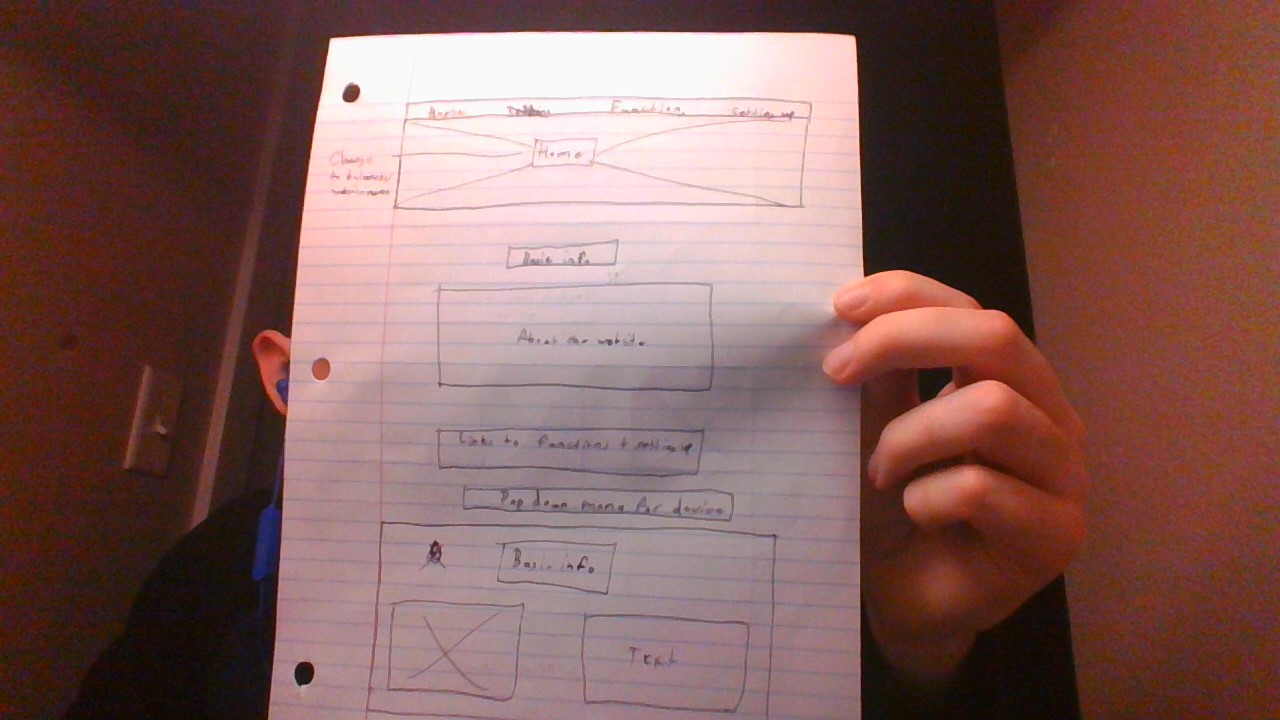 Home Functions Setting up
Home
Change
to
Basic info
About the website
Links to functions + setting up
Pop down menu for device
Basic info
Text